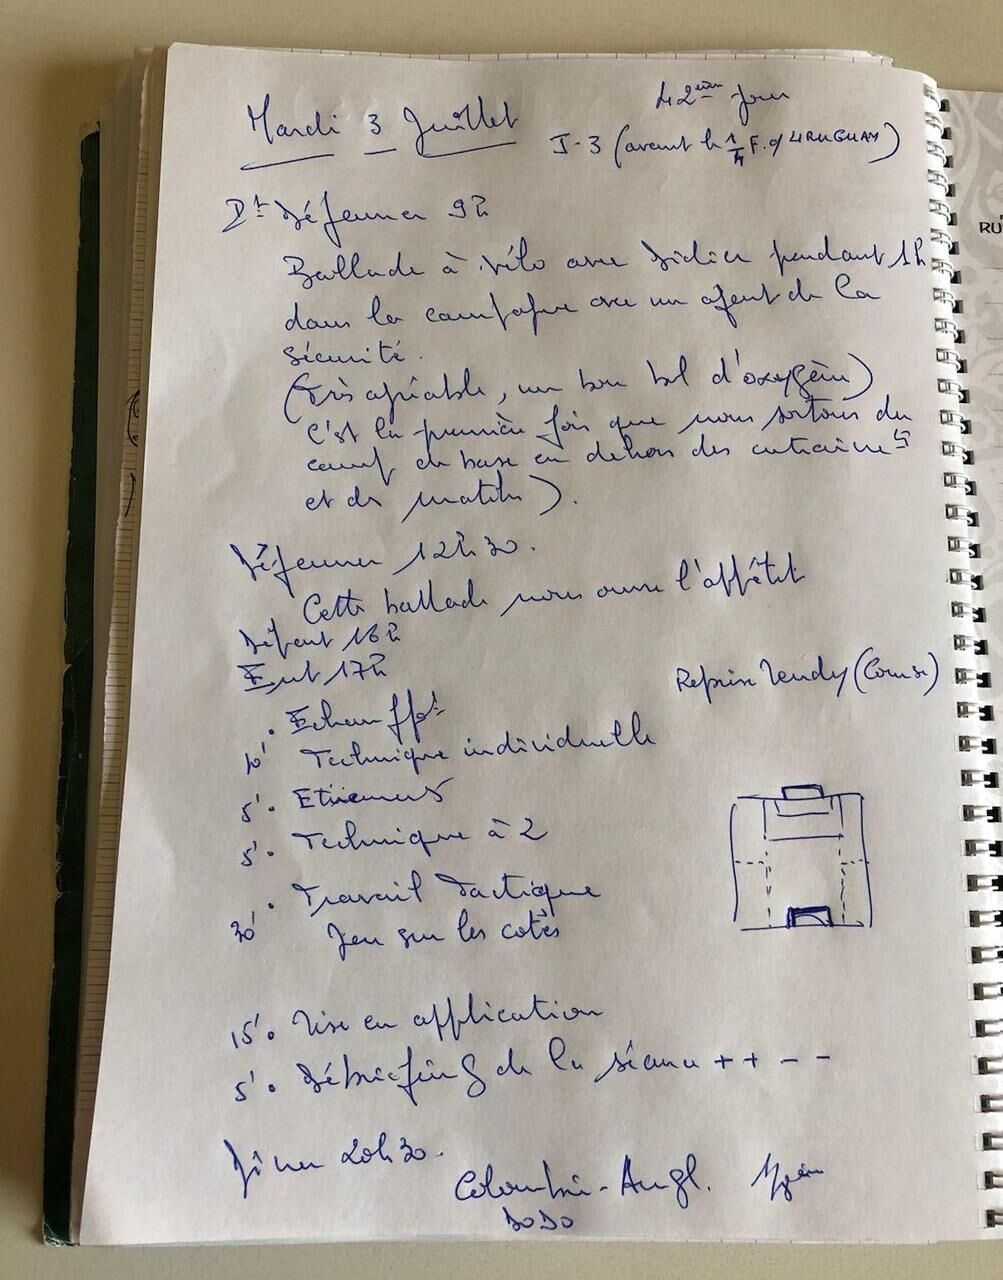 Mardi 3 Juillet
42ème jour
J-3 (avant le 1/4 F. d'URUGUAY)
Pt Déjeuner 9h
Ballade à vélo avec Didier pendant 1h
dans la campagne avec un agent de la
sécurité.
(très agréable, un bon bol d'oxygène)
C'est la première fois que nous sortons du
camp de base en dehors des entraînemts
et des matchs).
RU
Déjeuner 12h30.
Cette ballade nous ouvre l'appétit
Départ 16h
Ent 17h
Reprise Mendy (Course)
. Echauffpt
10' Technique individuelle
5'. Etirements
5'. Technique à 2
30' . Travail Tactique
Jeu sur les cotés
15'. Mise en application
5'. Débriefing de la séance ++ --
Dîner 20h30.
Colombie - Angl.
DODO